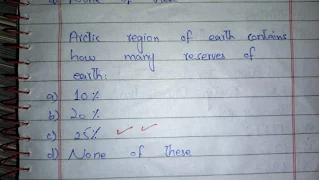 Arctic region of earth contains
how many reserves of
earth:
a) 10%
b) 20%
c) 25%
d) None of these